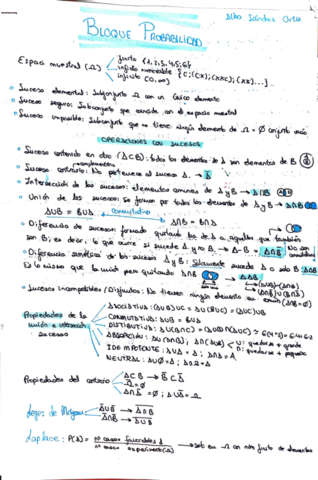 Alba Sández Ortiz
BLOQUE PROBABILIDAD
Espacio muestral (Ω)
finito {1,2,3,4,5,6}
infinito numerable {C; (CX); (XXC); (XX)...}
infinito (0,∞)
• Suceso elemental: Subconjunto Ω con un único elemento
• Suceso seguro: Subconjunto que coincide con el espacio muestral
• Suceso imposible: Subconjunto que no tiene ningún elemento de Ω = Ø conjunto vacío
OPERACIONES CON SUCESOS
• Suceso contenido en otro (A⊂B): todos los elementos de A son elementos de B
• Suceso contrario: No pertenece al suceso A. → A̅
• Intersección de los sucesos: elementos comunes de A y B → A∩B
• Unión de los sucesos: se forma por todos los elementos de A y B →
AUB = BUA → conmutativa → A∩B = B∩A
• Diferencia de sucesos: formado quitando los de A aquellos que también
son B; es decir, lo que ocurre si sucede A y no B → A - B →
• Diferencia simétrica de los sucesos A y B: Solamente sucede A o solo B:
Es lo mismo que la unión pero quitando A∩B
• Sucesos incompatibles/Disjuntos: No tienen ningún elemento en común (A∩B=Ø)
Propiedades de la unión e intersección sucesos
ASOCIATIVA: (AUB)UC = AU(BUC)
CONMUTATIVA: AUB = BUA
DISTRIBUTIVA: AU(B∩C) = (AUB)∩(AUC)
ABSORCIÓN: AU(A∩B), A∩(AUB)
IDEMPOTENTE: AUA = A; A∩A = A
NEUTRAL: AUØ = A;
Propiedades del contrario
A⊂B → B̅⊂A̅
Ω̅ = Ø
A∩A̅ = Ø; AUA̅ = Ω
Leyes de Morgan
Laplace: P(A) = nº casos favorables A / nº casos experimento (Ω) → solo en Ω con nºs finito de elementos